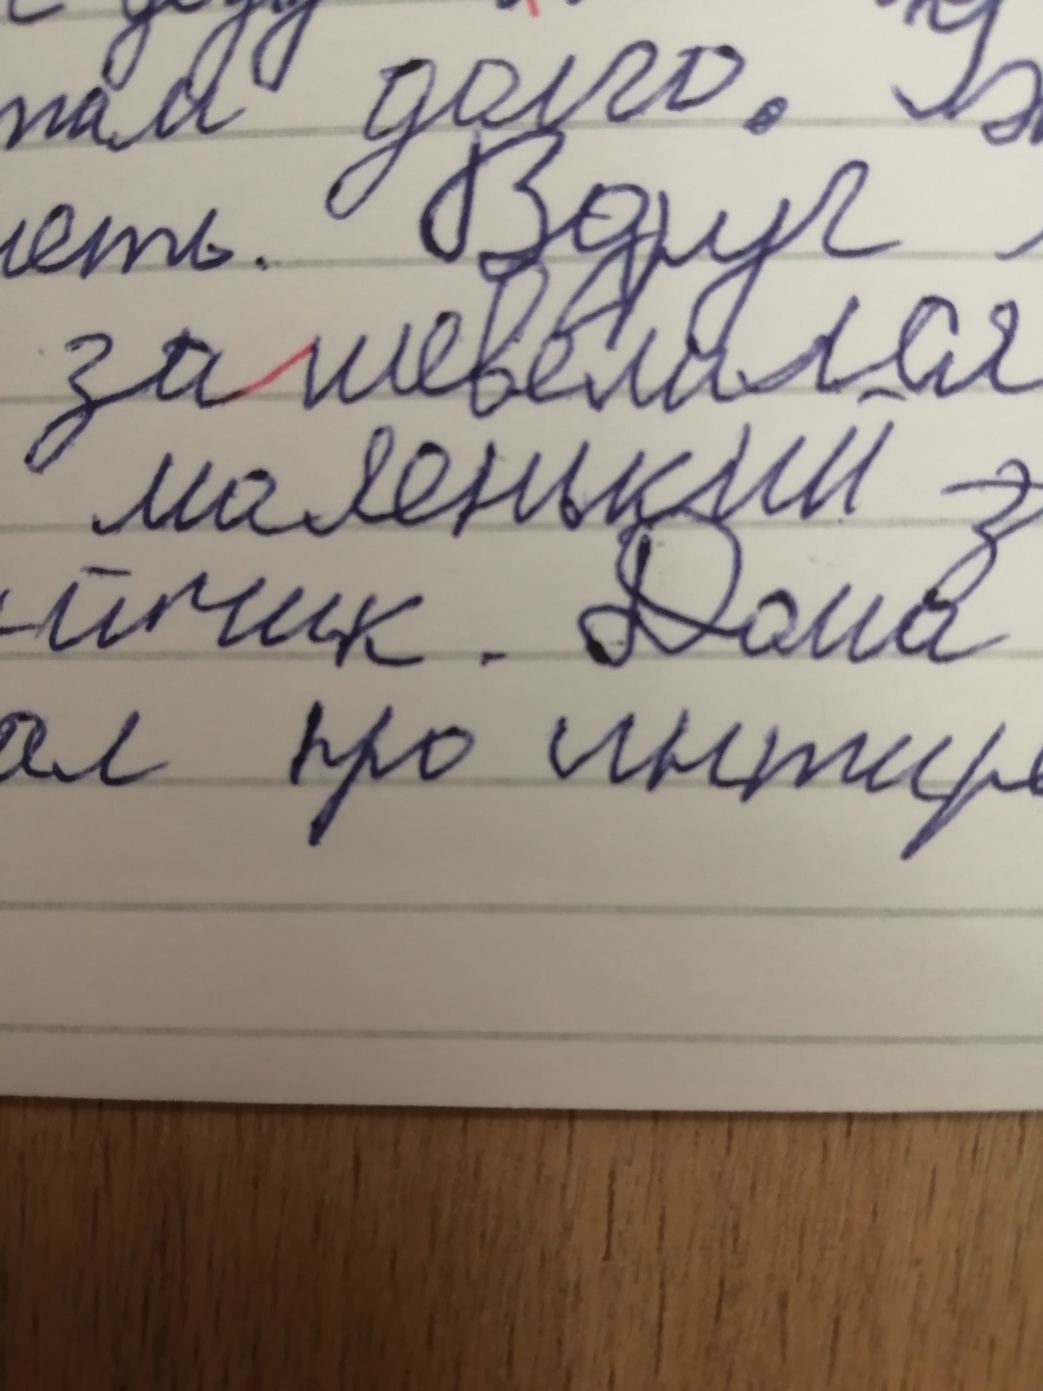 там долго.
меть. Вдруг
зашевелился
маленький з
йчик. Дома
ал про интире